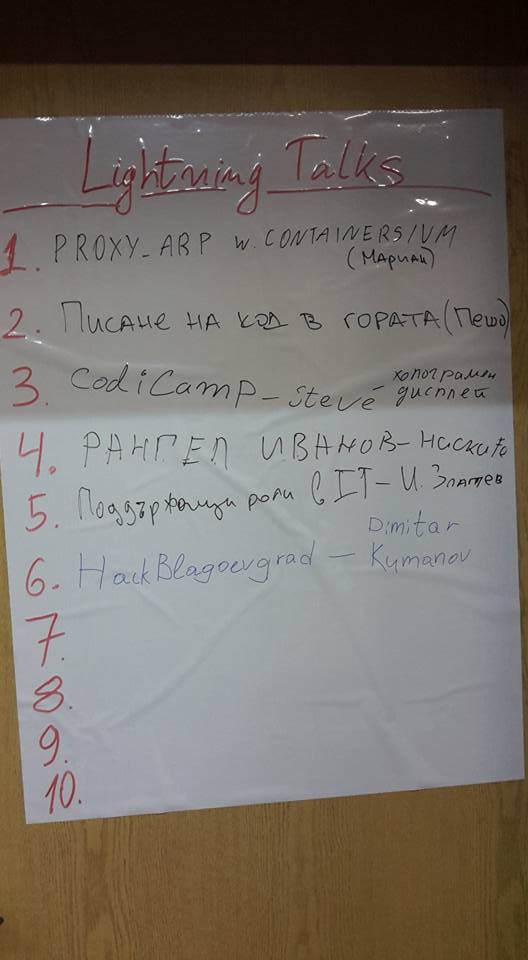 Lightning Talks
1. PROXY_ARP w. CONTAINERS/VM
(МАРИАН)
2. ПИСАНЕ НА КОД В ГОРАТА (ПЕШО)
3. CodiCamp - Steve - холограмен
дисплей
4. РАНГЕЛ ИВАНОВ -
5. Поддържащи роли в IT - И. Златев
6. HackBlagoevgrad - Dimitar
Kymanov
7.
8.
9.
10.